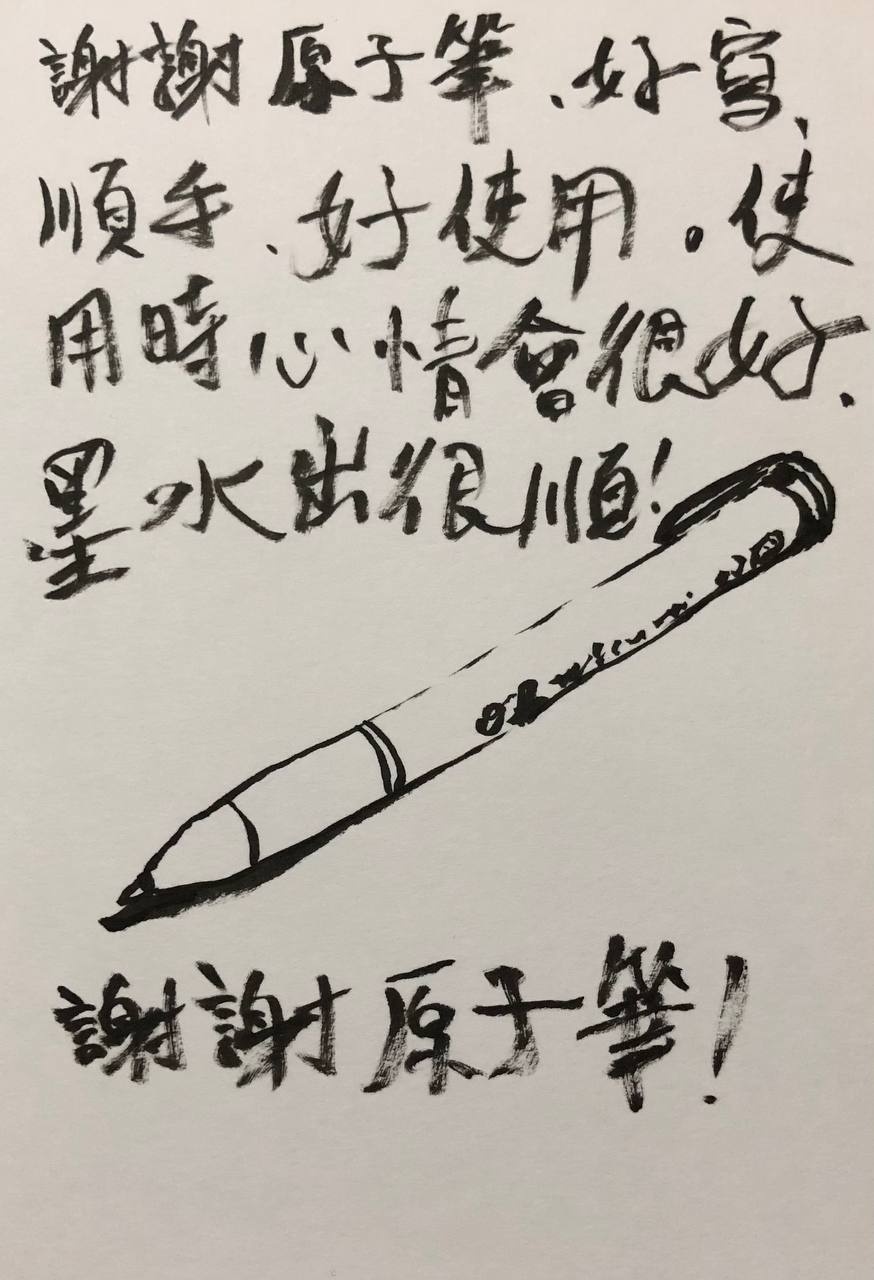 謝謝原子筆、好寫、
順手、好使用。使
用時心情會很好、
墨水出很順!
謝謝原子筆!